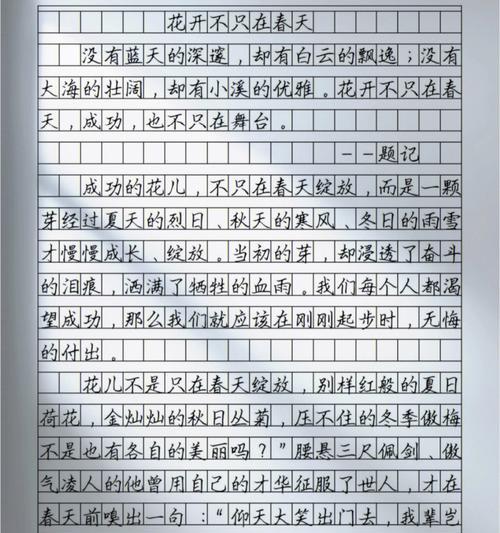 花开不只在春天
没有蓝天的深邃，却有白云的飘逸；没有
大海的壮阔，却有小溪的优雅。花开不只在春
天，成功，也不只在舞台。
--题记
成功的花儿，不只在春天绽放，而是一颗
芽经过夏天的烈日、秋天的寒风、冬日的雨雪
才慢慢成长、绽放。当初的芽，却浸透了奋斗
的泪痕，洒满了牺牲的血雨。我们每个人都渴
望成功，那么我们就应该在刚刚起步时，无悔
的付出。
花儿不是只在春天绽放，别样红般的夏日
荷花，金灿灿的秋日丛菊，压不住的冬季傲梅
不是也有各自的美丽吗？”腰悬三尺佩剑、傲
气凌人的他曾用自己的才华征服了世人，才在
春天前嗅出一句：“仰天大笑出门去，我辈岂